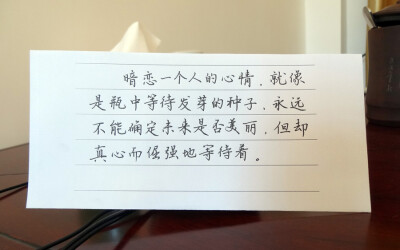 暗恋一个人的心情，就像
是瓶中等待发芽的种子、永远
不能确定未来是否美丽，但却
真心而倔强地等待着。